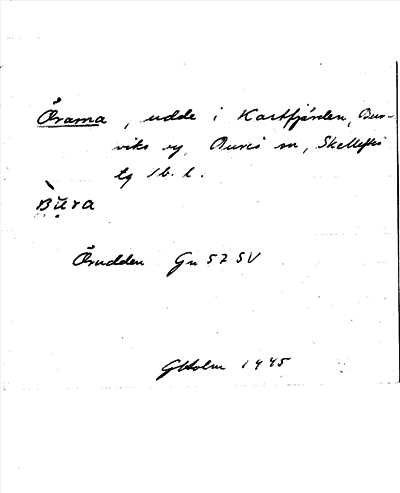 Örarna, udde i Kastfjärden, Bur-
viks by, Bureå sn, Skellefteå
tg Vb. l.
Bùra
Örudden Gn 57 SV
GHolm 1945